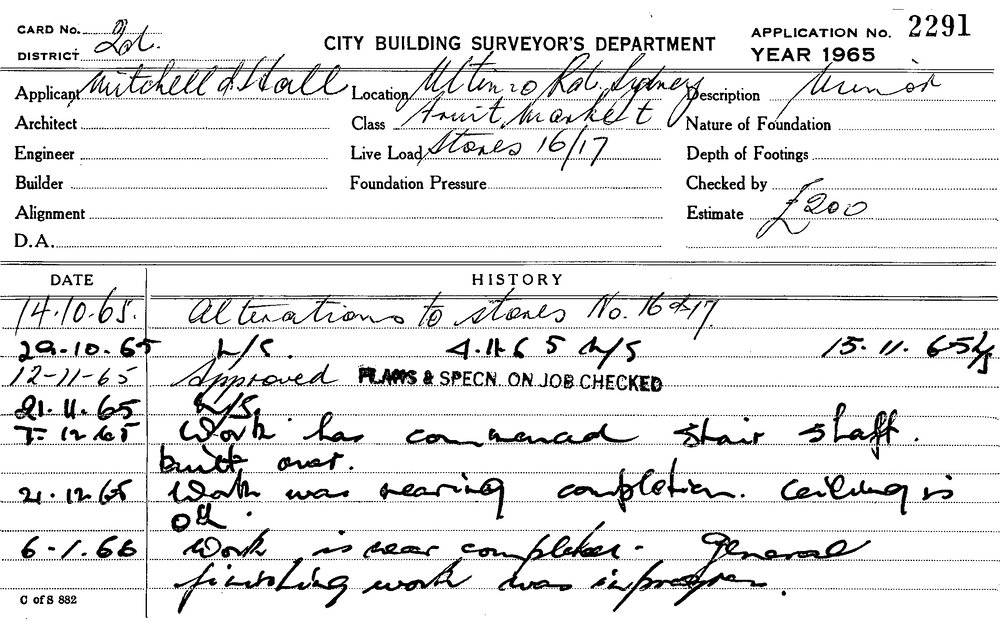 CARD No. 2d. APPLICATION No. 2291
DISTRICT CITY BUILDING SURVEYOR'S DEPARTMENT YEAR 1965
Applicant Mitchell & Hall Location Ultimo Rd. Sydney Description Minor
Architect Class Fruit Market Nature of Foundation
Engineer Live Load Stores 16/17 Depth of Footings
Builder Foundation Pressure Checked by
Alignment Estimate £200
D.A.
DATE HISTORY
14.10.65. Alterations to stores No. 16 & 17.
29.10.65 4.11.65 15.11.65
12-11-65 Approved PLANS & SPECN. ON JOB CHECKED
21.11.65
7-12-65 Work has commenced stair shaft.
built over.
21.12.65 Work was nearing completion. Ceiling is
6-1.66 Work is near completed. General
finishing work was in progress.
C of S 882